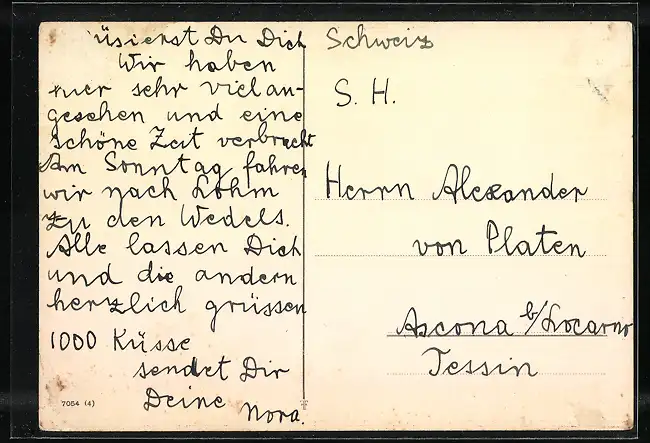 üsierst Du Dich
Wir haben
hier sehr viel an-
gesehen und eine
schöne Zeit verbracht
Am Sonntag fahren
wir nach Lohm
zu den Wedels.
Alle lassen Dich
und die andern
herzlich grüssen
1000 Küsse
sendet Dir
Deine Nora.
7054 (4)
Schweiz
S. H.
Herrn Alexander
von Platen
Ascona b/Locarno
Tessin